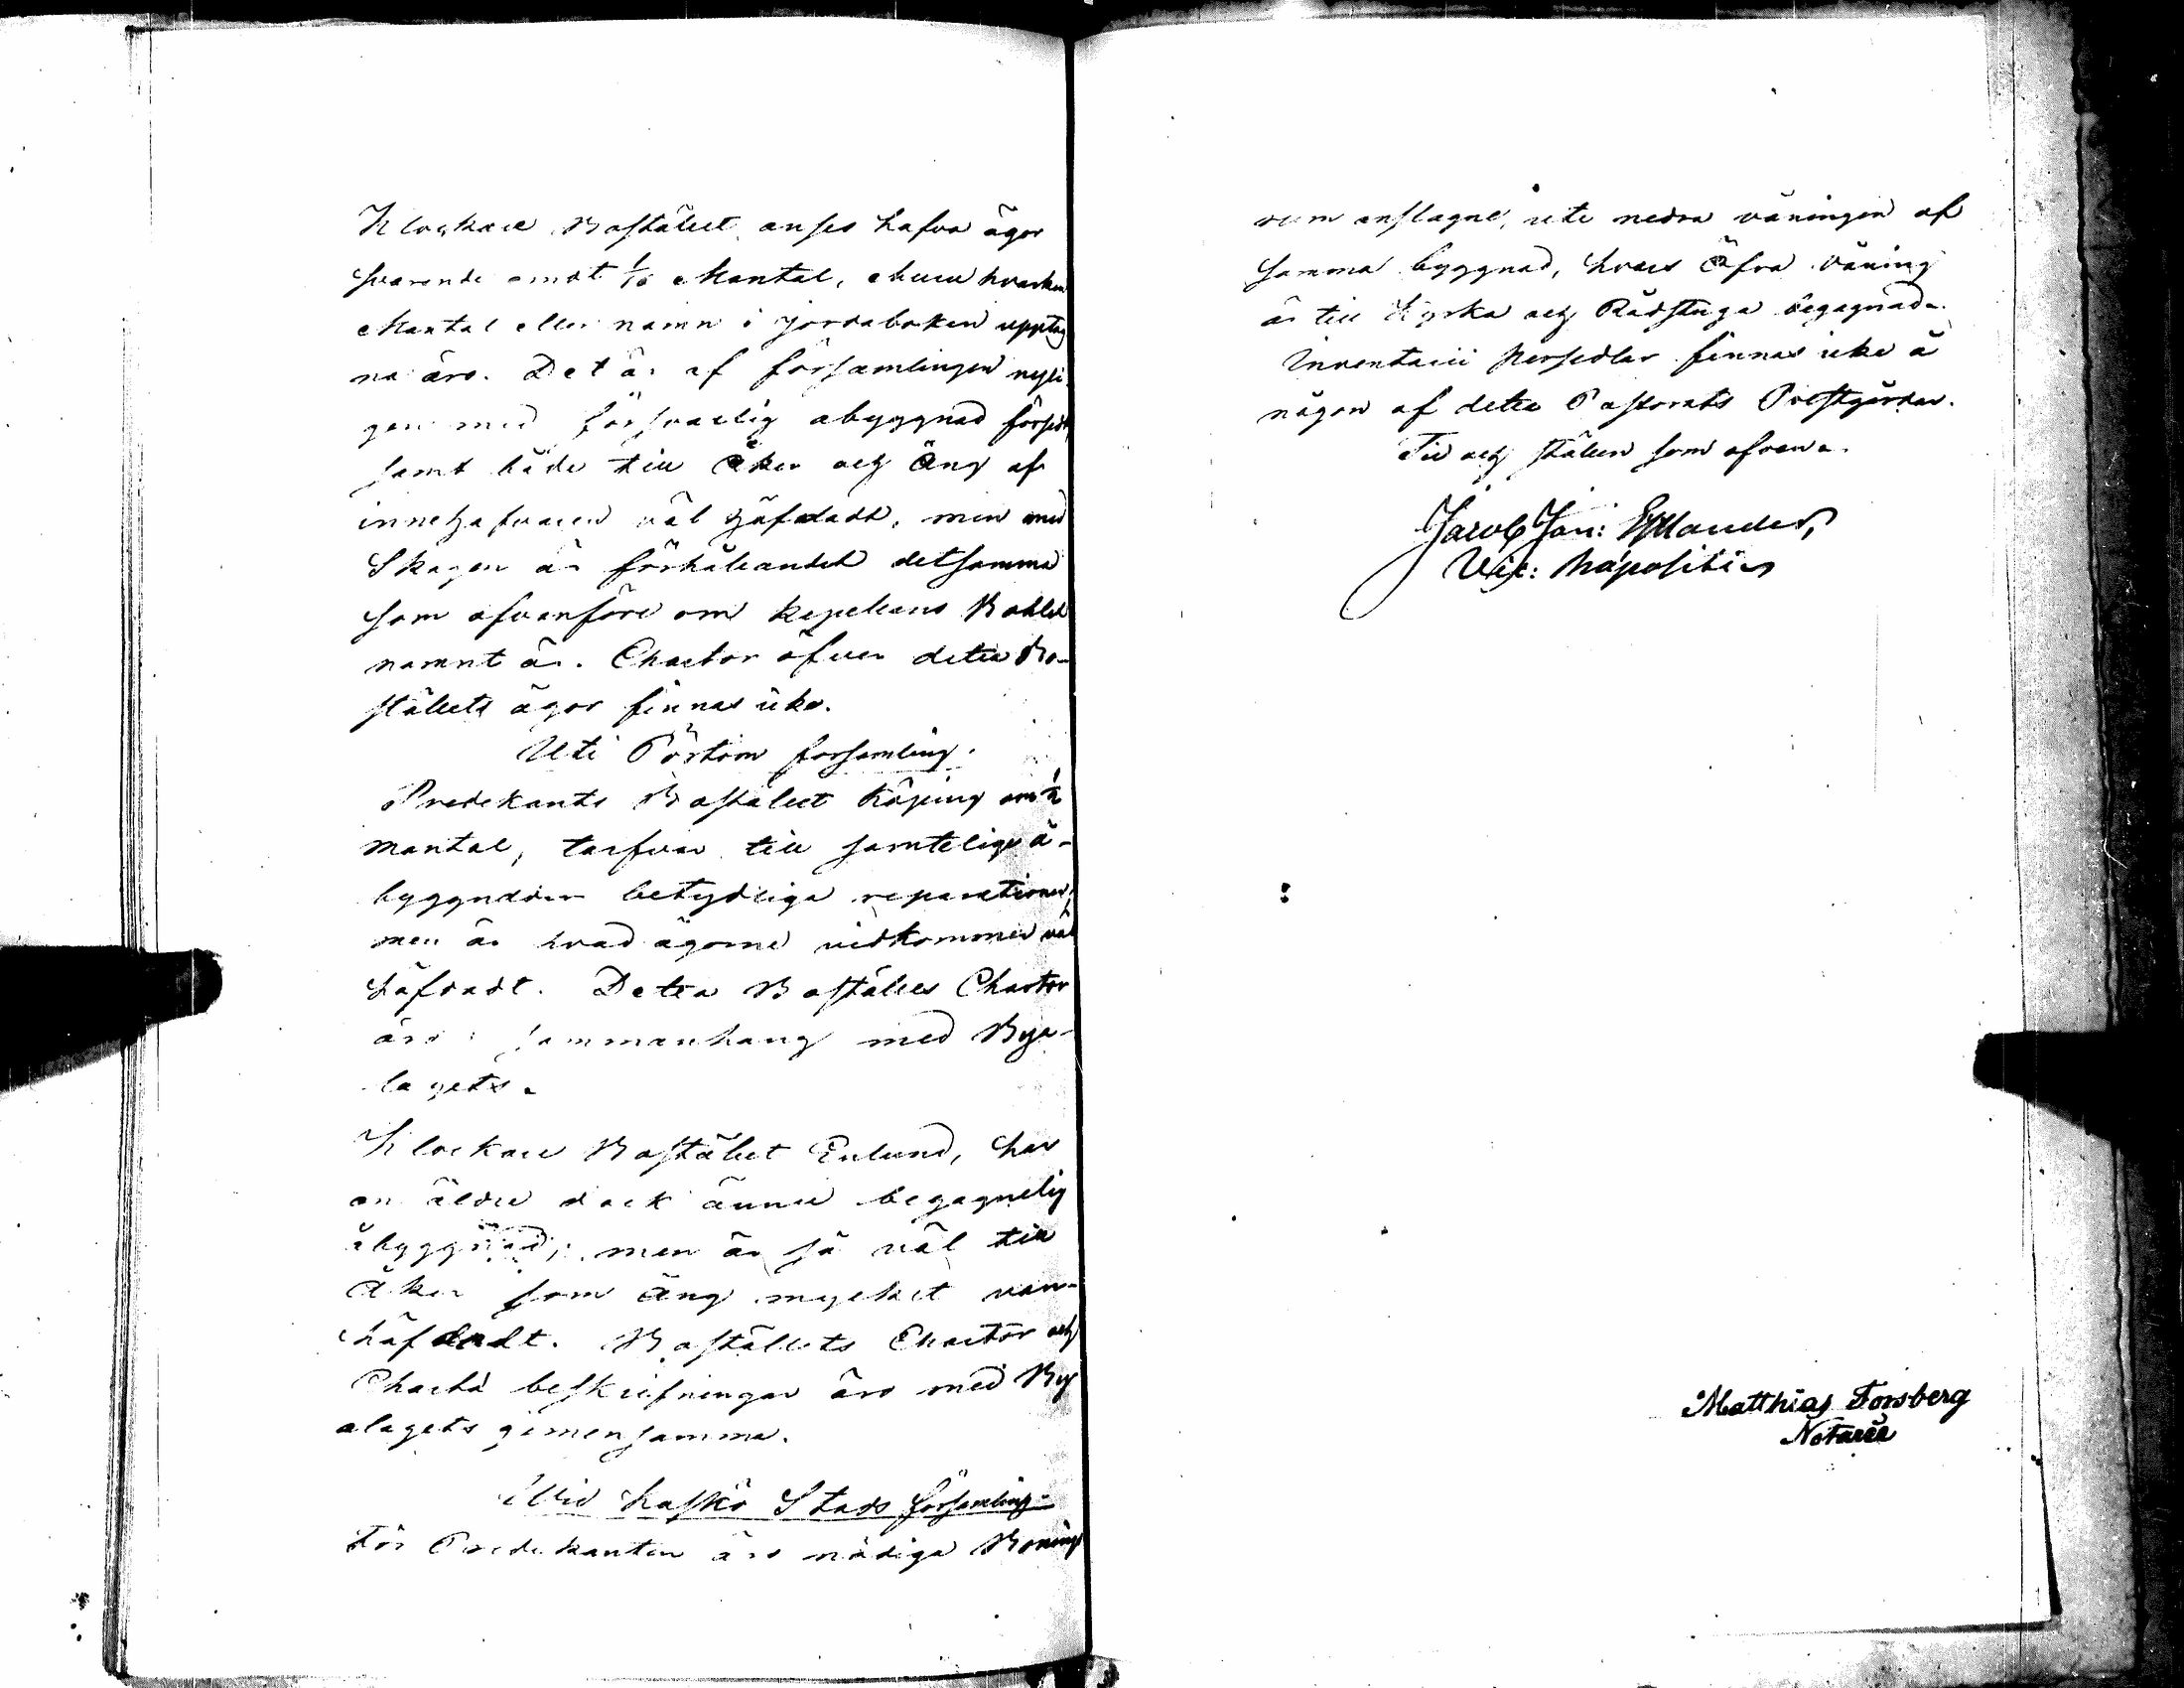 Klockare Bostället anses hafva ägor
svarande emot 1/16 Mantal, ehuru hvarken
Mantal eller namn i jordaboken uppteg
na äro. Det är af församlingen nyli
gen med försvarlig åbyggnad försedt,
samt både till Åker och Äng af
innehafvaren väl häfdadt, men med
Skogen är förhållandet detsamma
som ofvanföre om kapellans Bohlet
nämnt är. Chartor öfver detta Bo-
ställets ägor finnas icke.
Uti Pörtom församling.
Predikants Bostället Köping om
mantal, tarfvar till samtelige å-
byggnader betydliga reparationer,
men är hvad ägorne vidkommer väl
häfdadt. Detta Boställes Chartor
äro i sammanhang med Bya-
lagets.
Klockare Bostället Enlund, har
en äldre dock ännu begagnelig
åbyggnad; men är så väl till
Åker som äng mycket van-
häfdadt. Boställets Chartor och
Charte beskrifningar äro med By
alagets gemensamma.
Wid Kaskö Stads församling
för Predikanten äro nödiga Bonings
rum anslagne, uti nedra våningen af
samma byggnad, hvars Öfra våning
är till Kyrka och Rådstuga begagnad.
Inventarii persedlar finnas icke å
någon af detta Pastorats Prestgårdar.
Tid och ställen som ofvan.
Jacob Joh:
Vice: Præpositus
Matthias Forsberg
Notarie